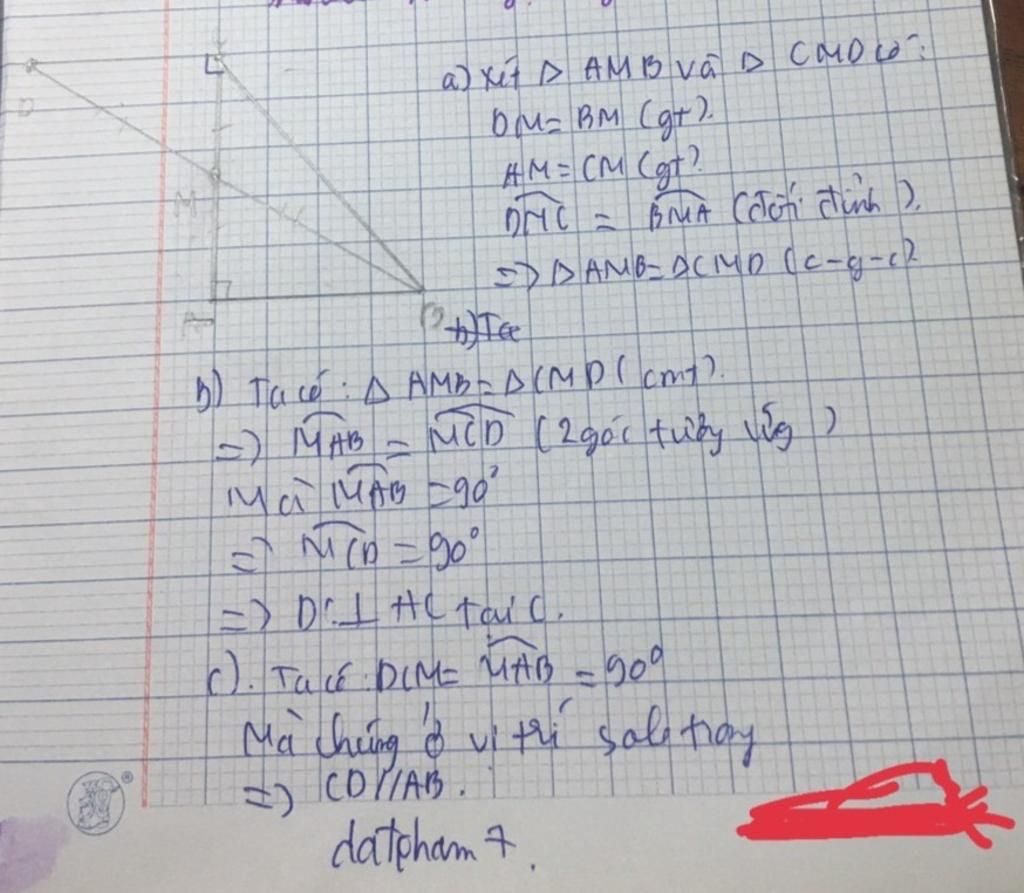 D
C
M
A
B
a) Xét Δ AMB và Δ CMD có:
DM = BM (gt).
AM = CM (gt)
DMC = BMA (đối đỉnh).
=> Δ AMB = ΔCMD (c-g-c)
b) Ta có: Δ AMB = ΔCMD (cmt).
=> MAB = MCD (2 góc tương ứng)
Mà MAB = 90°
=> MCD = 90°
=> DC ⊥ AC tại C.
c). Ta có: DCM = MAB = 90°
Mà chúng ở vị trí sole trong
=> CD // AB.
datpham 7.